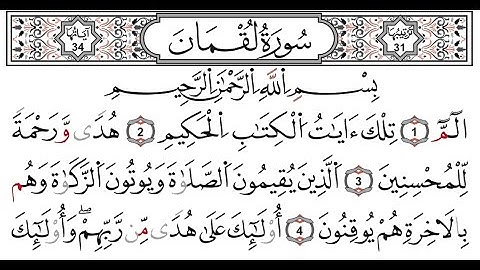 ترتيبها 31 سورة لقمان آياتها 34
بِسْمِ ٱللَّهِ ٱلرَّحْمَٰنِ ٱلرَّحِيمِ
الٓمٓ 1 تِلْكَ ءَايَاتُ ٱلْكِتَابِ ٱلْحَكِيمِ 2 هُدًى وَّرَحْمَةً
لِّلْمُحْسِنِينَ 3 ٱلَّذِينَ يُقِيمُونَ ٱلصَّلَوٰةَ وَيُوتُونَ ٱلزَّكَوٰةَ وَهُم
بِالَاخِرَةِ هُمْ يُوقِنُونَ 4 أُوْلَٰٓئِكَ عَلَىٰ هُدًى مِّن رَّبِّهِمْۖ وَأُوْلَٰٓئِكَ